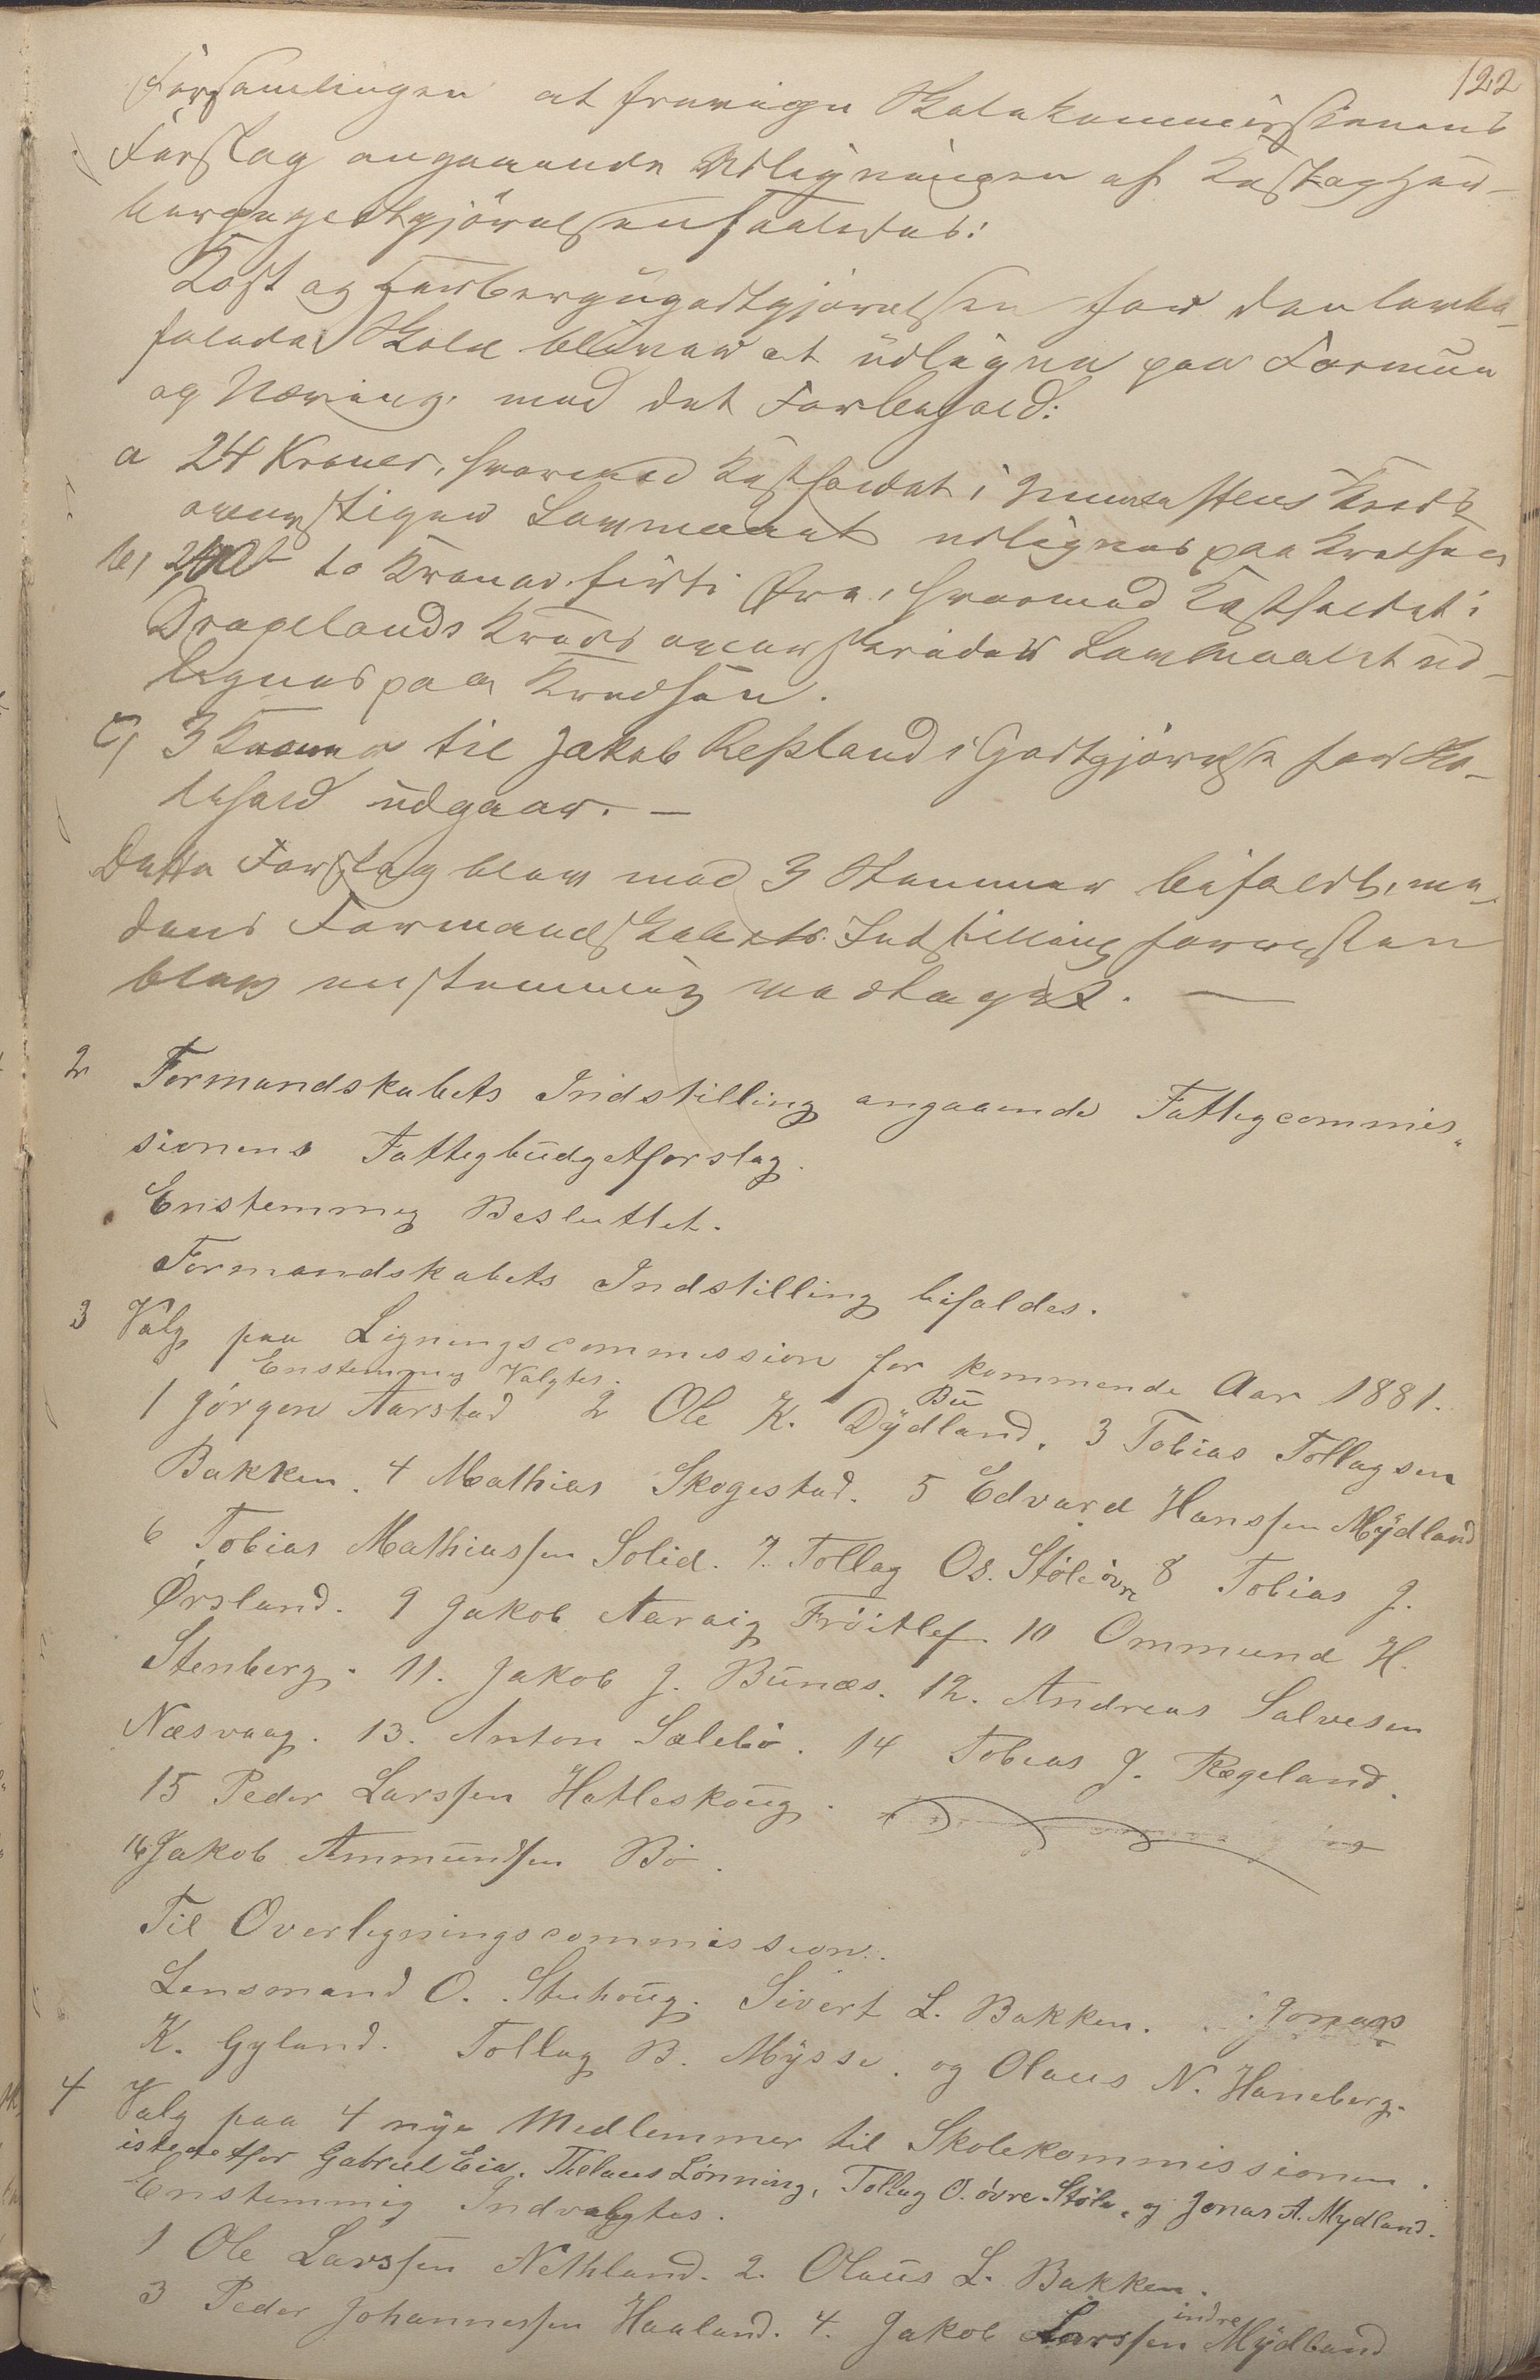 122
Forsamlingen at fravige Skolekommissionens
Forslag angaaende Udligningen af Kost og Her-
bergegodtgjörelsen saaledes:
Kost og Herbergegodtgjörelsen for den lovbe-
falede Skole bliver at udligne paa Formue
og Næring med det Forbehold:
a 24 Kroner, svarende Kostholdet i Kreds
overstigende Lovmaalet udlignes paa Kredsen
b, 2,40 to Kroner firti Øre, svarende Kostholdet i
Dragelands Kreds overskridende Lovmaalet ud-
lignes paa Kredsen.
c, 3 Kroner til Jakob Refsland i Godtgjörelse for Sko-
lehold udgaar. —
Dette Forslag blev med 3 Stemmer bifaldt, me-
dens Formandskabets Indstilling forresten
blev enstemmig vedtaget. —
2 Formandskabets Indstilling angaaende Fattigcommis-
sionens Fattigbudgetforslag.
Enstemmig Besluttet.
Formandskabets Indstilling bifaldes.
3 Valg paa Ligningscommission for kommende Aar 1881.
Enstemmig Valgtes.
1 Jörgen Aarstad 2 Ole K. Dÿdland. Bu 3 Tobias Tollagsen
Bakken. 4 Mathias Skogestad. 5 Edvard Hanssen Mÿdland
6 Tobias Mathiassen Solid. 7. Tollag Os. Stöle övre 8 Tobias J.
Ørsland. 9 Jakob Aaraig Fröitlef. 10 Ommund H.
Stenberg. 11. Jakob J. Bunæs. 12. Andreas Salvesen
Næsvaag. 13. Anton Salebö. 14 Tobias J. Rægeland.
15 Peder Larssen Hatleskoug.
16 Jakob Ammundsen Bö.
Til Overligningscommission.
Lensmand O. Stuhoug. Sivert L. Bakken. Jonas
K. Gyland. Tollag B. Mÿsse. og Olaus N. Haneberg.
4 Valg paa 4 nye Medlemmer til Skolekommissionen
istedetfor Gabriel Eia. Lönning, Tollag O. övre Stöle, og Jonas A. Mydland.
Enstemmig Indvalgtes.
1 Ole Larssen Nethland. 2. Olaus L. Bakken.
3 Peder Johannessen Haaland. 4. Jakob Larssen indre Mÿdland